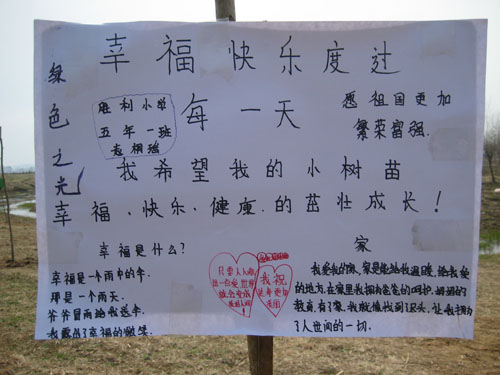 幸福快乐度过
绿色之光
胜利小学
五年一班
每一天
愿祖国更加
繁荣富强.
我希望我的小树苗
幸福、快乐、健康、的茁壮成长!
幸福是什么?
幸福是一个雨中的伞.
那是一个雨天.
爷爷冒雨给我送伞.
我露出了幸福的微笑.
只要人人献
出一点爱,世界
就会变成
美好人间
我祝
家
我爱我的家,家是能给我温暖、给我爱
的地方.在家里我拥有爸爸的呵护,妈妈的
教育,有了家,我就像找到了源头,让我拥有
了人世间的一切.